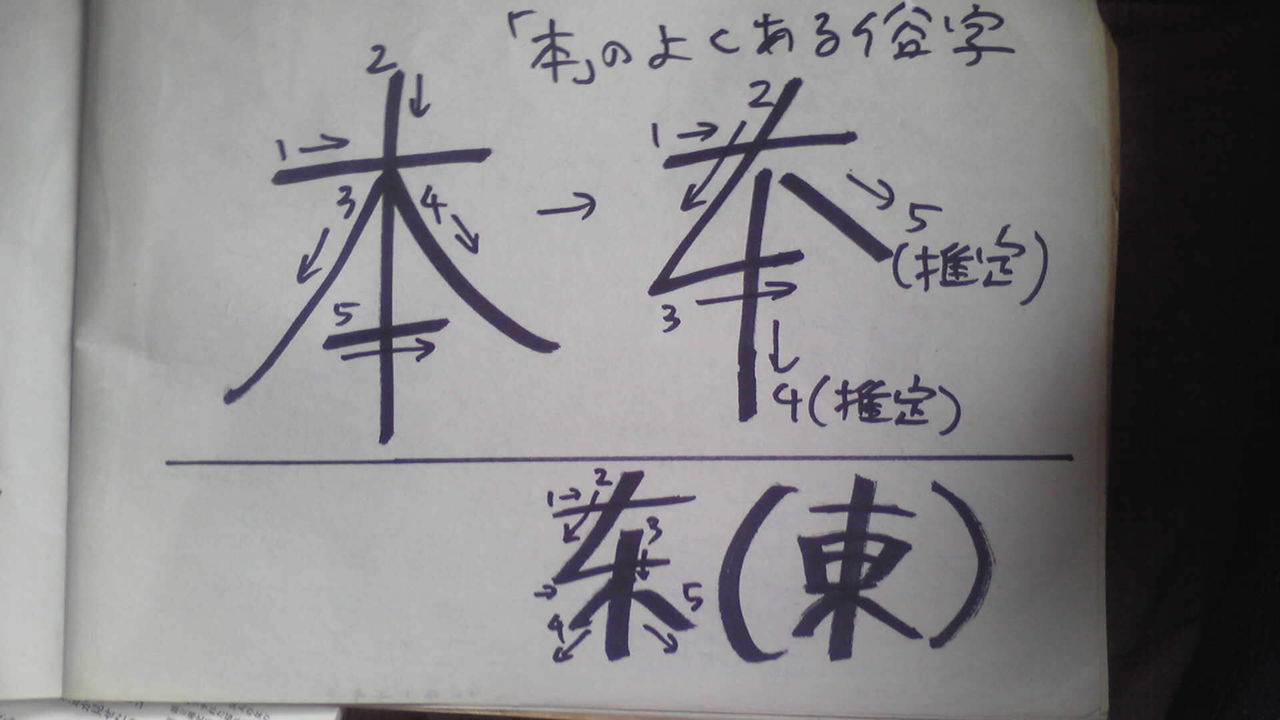 「本」のよくある俗字
2
1→
3 4
5
→
2
1→
5
(推定)
3
4(推定)
1→ 2
3
4 5
(東)